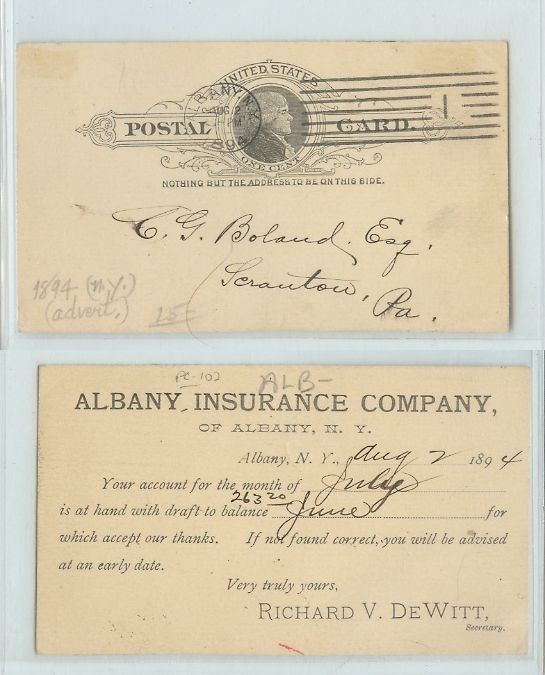 UNITED STATES
ALBANY, N.Y.
AUG 2
894
POSTAL CARD.
ONE CENT
1
NOTHING BUT THE ADDRESS TO BE ON THIS SIDE.
C. G. Boland, Esq.
Scranton,
Pa.
1894 (N.Y.)
(advert.)
15-
PC-102
ALB-
ALBANY INSURANCE COMPANY,
OF ALBANY, N. Y.
Albany, N. Y., Aug 2 1894
Your account for the month of July
263 20
is at hand with draft to balance June for
which accept our thanks. If not found correct, you will be advised
at an early date.
Very truly yours,
RICHARD V. DEWITT,
Secretary.